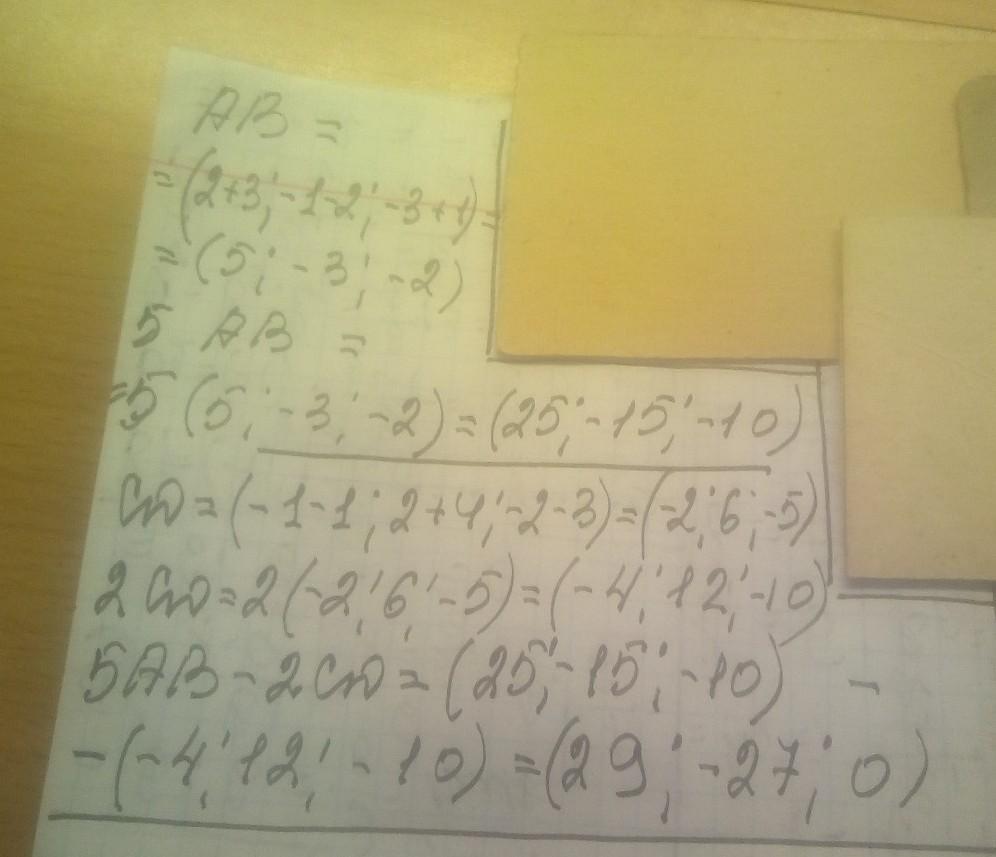 AB =
= (2+3; -1-2; -3+1) =
= (5; -3; -2)
5 AB =
=5 (5; -3; -2) = (25; -15; -10)
CD = (-1-1; 2+4; -2-3) = (-2; 6; -5)
2 CD = 2(-2; 6; -5) = (-4; 12; -10)
5AB - 2CD = (25; -15; -10) -
- (-4; 12; -10) = (29; -27; 0)